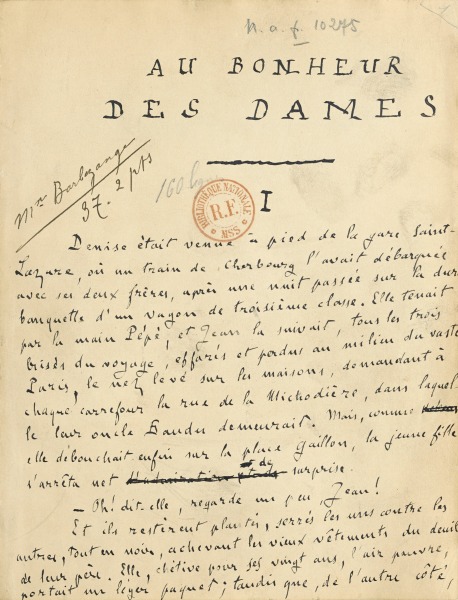 n. a. f. 10275
AU BONHEUR
DES DAMES
Mr Barbazange
37. 2 pts
BIBLIOTHÈQUE NATIONALE
R.F.
MSS
I
Denise était venue à pied de la gare Saint-
Lazare, où un train de Cherbourg l'avait débarquée
avec ses deux frères, après une nuit passée sur la dure
banquette d'un wagon de troisième classe. Elle tenait
par la main Pépé, et Jean la suivait, tous les trois
brisés du voyage, effarés et perdus au milieu du vaste
Paris, le nez levé sur les maisons, demandant à
chaque carrefour la rue de la Michodière, dans laquel
le leur oncle Baudu demeurait. Mais, comme
elle débouchait enfin sur la place Gaillon, la jeune fille
s'arrêta net d'admiration et de surprise.
– Oh! dit-elle, regarde un peu, Jean!
Et ils restèrent plantés, serrés les uns contre les
autres, tout en noir, achevant les vieux vêtements du deuil
de leur père. Elle, chétive pour ses vingt ans, l'air pauvre,
portait un léger paquet; tandis que, de l'autre côté,